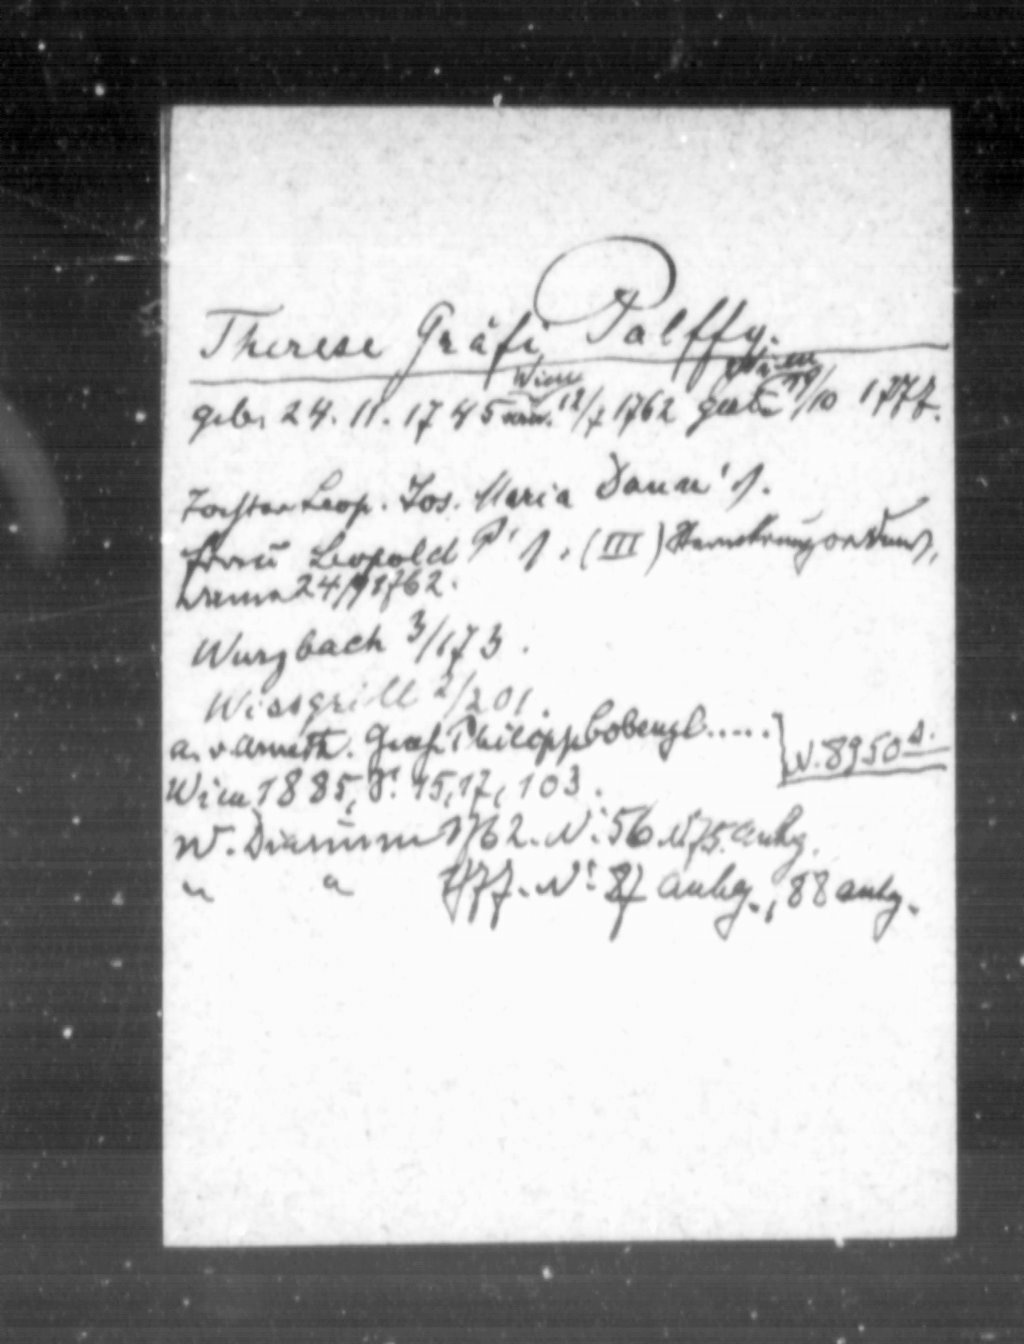 Therese Gräfi Palffy.
Wien Wien
geb. 24. 11. 1745 verm. 12/7 1762 gest. 29/10 1777.
Tochter Leop. Jos. Maria Daun's.
Frau Leopold P's. (III) Sternkreuzordens,
dame 24/9 1762.
Wurzbach 3/173.
Wissgrill 2/201.
a. v. Arneth. Graf Philipp Cobenzl.....
N. 8950 A.
Wien 1885, S. 15, 17, 103.
W. Diarium 1762. No: 56 N 75. anhg.
" " 1777. No: 87 anhg., 88 anhg.